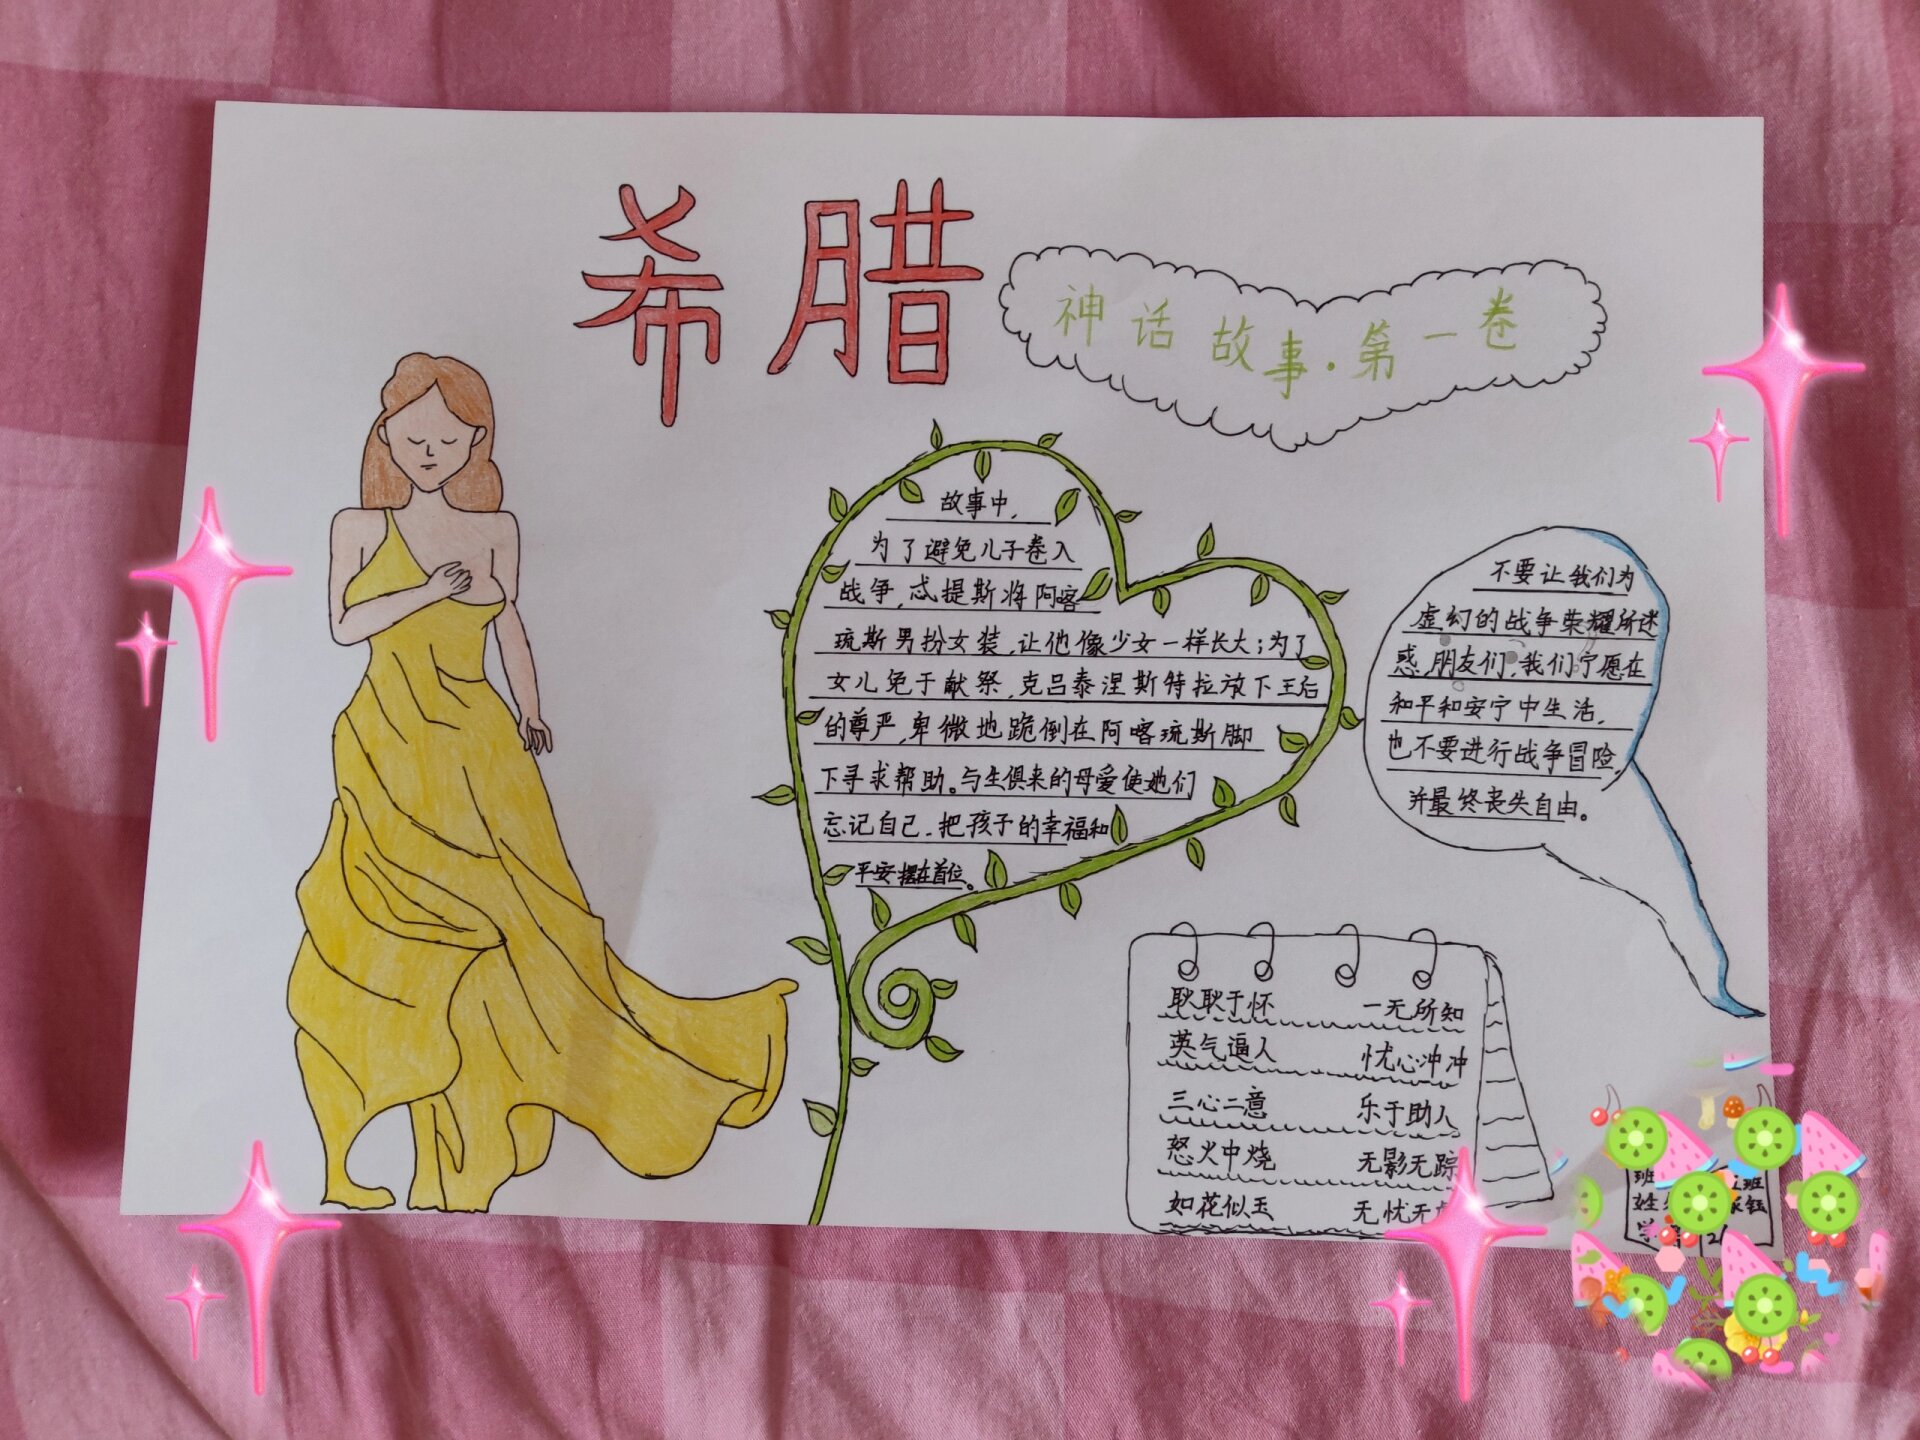 希腊
神话故事·第一卷
故事中,
为了避免儿子卷入
战争,忒提斯将阿喀
琉斯男扮女装,让他像少女一样长大;为了
女儿免于献祭,克吕泰涅斯特拉放下王后
的尊严,卑微地跪倒在阿喀琉斯脚
下寻求帮助。与生俱来的母爱使她们
忘记自己,把孩子的幸福和
平安摆在首位。
不要让我们为
虚幻的战争荣耀所迷
惑,朋友们,我们宁愿在
和平和安宁中生活,
也不要进行战争冒险,
并最终丧失自由。
耿耿于怀 一无所知
英气逼人 忧心冲冲
三心二意 乐于助人
怒火中烧 无影无踪
如花似玉 无忧无
班 班
姓
学